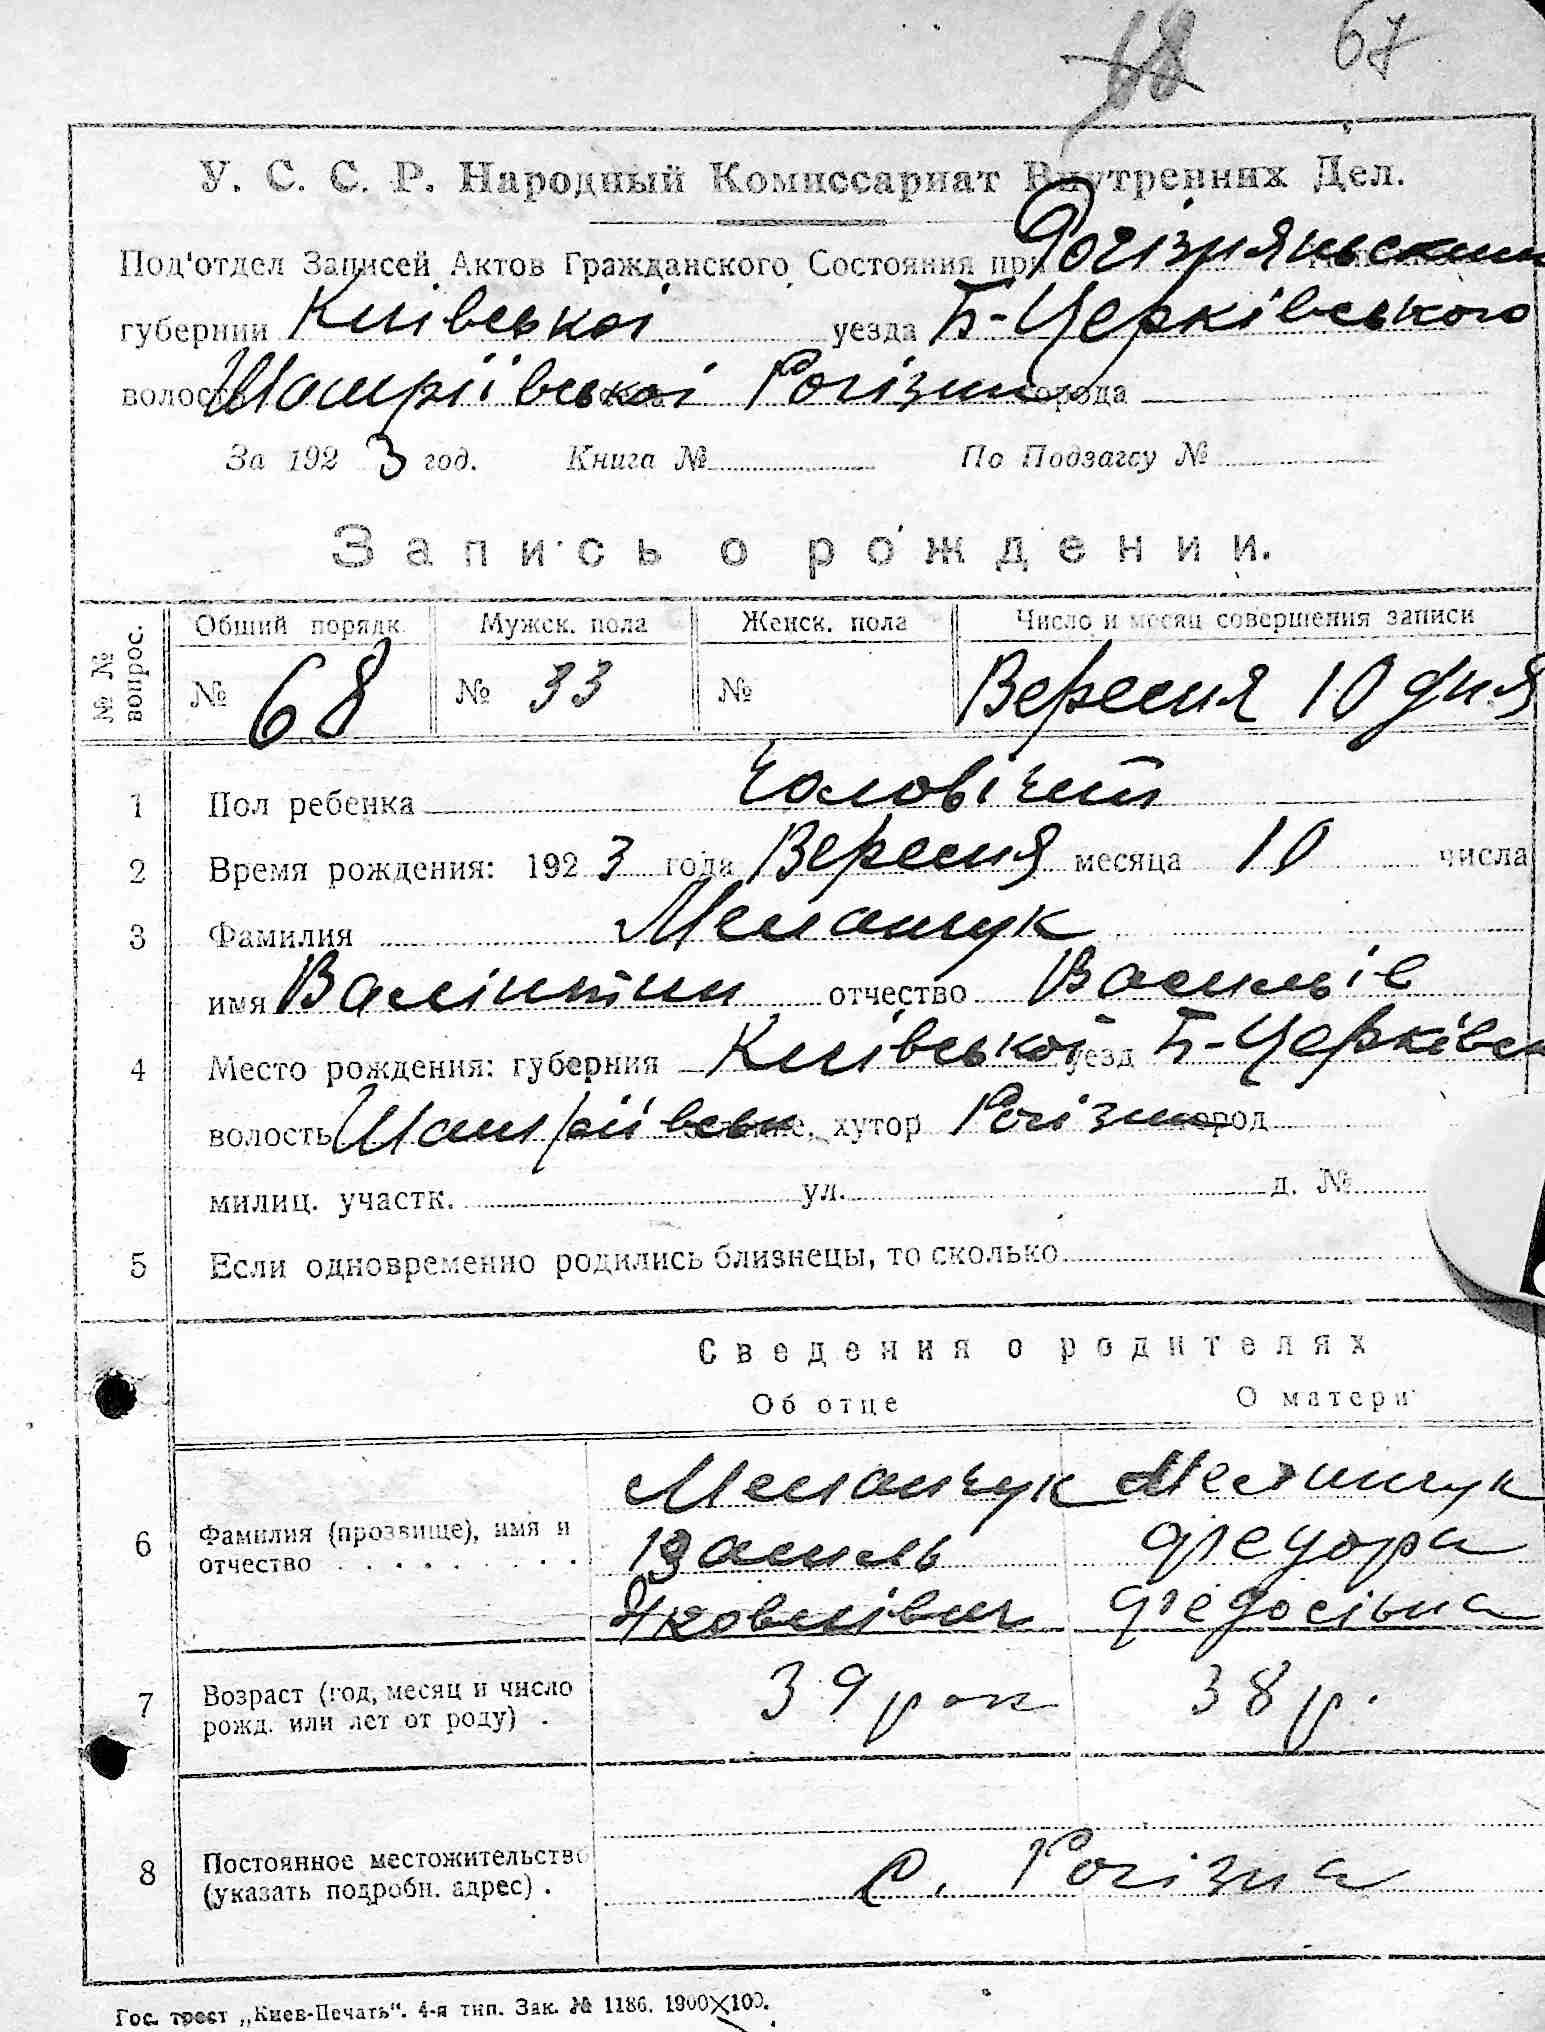 68 67
У. С. С. Р. Народный Комиссариат Внутренних Дел.
Под'отдел Записей Актов Гражданского Состояния при Рогізнянським
губернии Київської уезда Б-Церківського
волость Шамріївської Рогізна города
За 1923 год. Книга № По Подзагсу №
Запись о рождении.
№№ вопрос. Общий порядк. Мужск. пола Женск. пола Число и месяц совершения записи
№ 68 № 33 № Вересня 10 дня
1 Пол ребенка Чоловічий
2 Время рождения: 1923 года Вересня месяца 10 числа
3 Фамилия Меланчук
имя Валінтин отчество Васильів
4 Место рождения: губерния Київської уезд Б-Церківсь
волость Шамріївськ хутор Рогізна город
милиц. участк. ул. д. №
5 Если одновременно родились близнецы, то сколько
Сведения о родителях
Об отце О матери
Меланчук Меланчук
6 Фамилия (прозвище), имя и отчество Василь Федора
Яковлівич Федосівна
7 Возраст (год, месяц и число рожд. или лет от роду) . 39 рок 38 р.
8 Постоянное местожительство (указать подробн. адрес) . с. Рогізна
Гос. трест „Киев-Печать“. 4-я тип. Зак. № 1186. 1900×100.